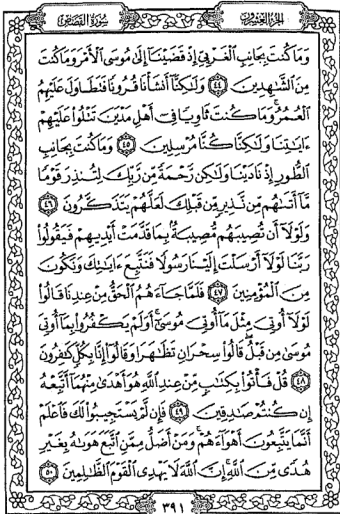 الجزء العشرون سورة القصص
وَمَا كُنتَ بِجَانِبِ ٱلْغَرْبِىِّ إِذْ قَضَيْنَآ إِلَىٰ مُوسَى ٱلْأَمْرَ وَمَا كُنتَ
مِنَ ٱلشَّٰهِدِينَ ٤٤ وَلَٰكِنَّآ أَنشَأْنَا قُرُونًا فَتَطَاوَلَ عَلَيْهِمُ
ٱلْعُمُرُ وَمَا كُنتَ ثَاوِيًا فِىٓ أَهْلِ مَدْيَنَ تَتْلُوا۟ عَلَيْهِمْ
ءَايَٰتِنَا وَلَٰكِنَّا كُنَّا مُرْسِلِينَ ٤٥ وَمَا كُنتَ بِجَانِبِ
ٱلطُّورِ إِذْ نَادَيْنَا وَلَٰكِن رَّحْمَةً مِّن رَّبِّكَ لِتُنذِرَ قَوْمًا
مَّآ أَتَىٰهُم مِّن نَّذِيرٍ مِّن قَبْلِكَ لَعَلَّهُمْ يَتَذَكَّرُونَ ٤٦
وَلَوْلَآ أَن تُصِيبَهُم مُّصِيبَةٌۢ بِمَا قَدَّمَتْ أَيْدِيهِمْ فَيَقُولُوا۟
رَبَّنَا لَوْلَآ أَرْسَلْتَ إِلَيْنَا رَسُولًا فَنَتَّبِعَ ءَايَٰتِكَ وَنَكُونَ
مِنَ ٱلْمُؤْمِنِينَ ٤٧ فَلَمَّا جَآءَهُمُ ٱلْحَقُّ مِنْ عِندِنَا قَالُوا۟
لَوْلَآ أُوتِىَ مِثْلَ مَآ أُوتِىَ مُوسَىٰٓ أَوَلَمْ يَكْفُرُوا۟ بِمَآ أُوتِىَ
مُوسَىٰ مِن قَبْلُ قَالُوا۟ سِحْرَانِ تَظَٰهَرَا وَقَالُوٓا۟ إِنَّا بِكُلٍّ كَٰفِرُونَ
٤٨ قُلْ فَأْتُوا۟ بِكِتَٰبٍ مِّنْ عِندِ ٱللَّهِ هُوَ أَهْدَىٰ مِنْهُمَآ أَتَّبِعْهُ
إِن كُنتُمْ صَٰدِقِينَ ٤٩ فَإِن لَّمْ يَسْتَجِيبُوا۟ لَكَ فَٱعْلَمْ
أَنَّمَا يَتَّبِعُونَ أَهْوَآءَهُمْ وَمَنْ أَضَلُّ مِمَّنِ ٱتَّبَعَ هَوَىٰهُ بِغَيْرِ
هُدًى مِّنَ ٱللَّهِ إِنَّ ٱللَّهَ لَا يَهْدِى ٱلْقَوْمَ ٱلظَّٰلِمِينَ ٥٠
٣٩١